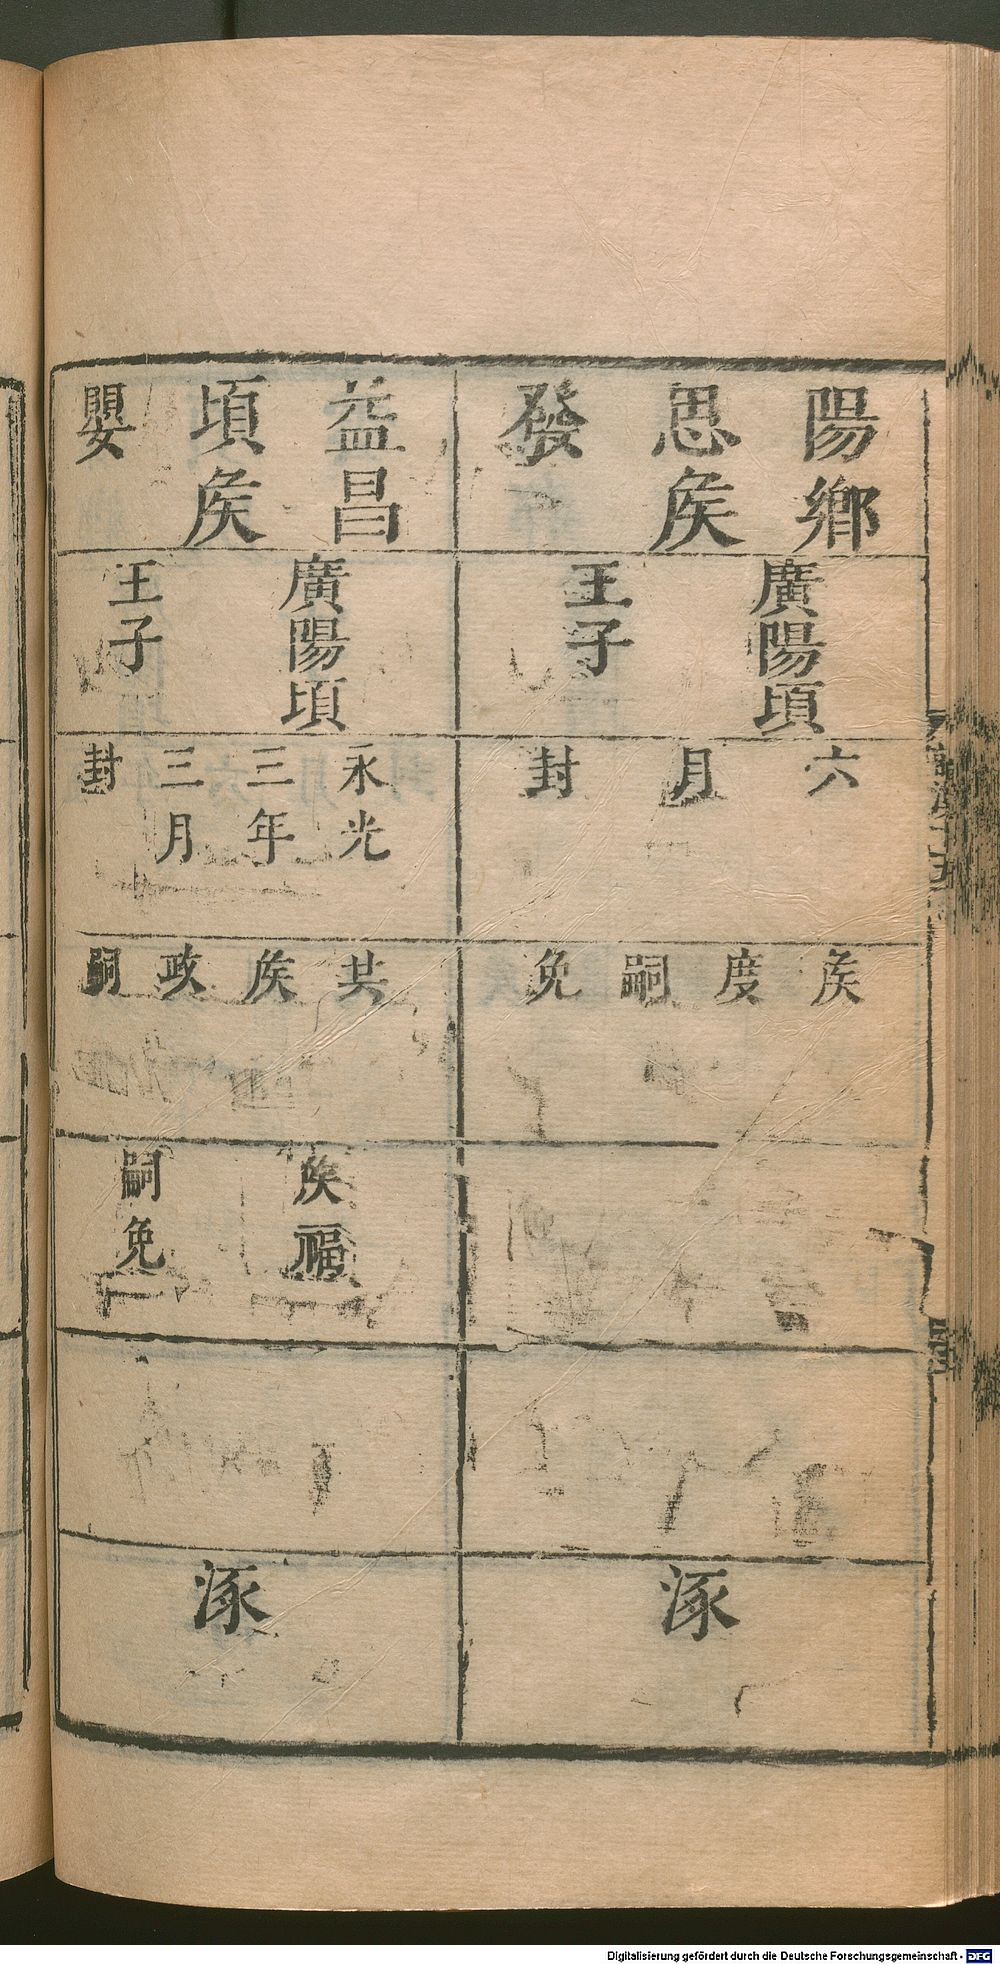 陽鄉
思侯
發
廣陽頃
王子
六
月
封
侯
度
嗣
免
涿
益昌
頃侯
嬰
廣陽頃
王子
永光
三年
三月
封
共
侯
政
嗣
侯福
嗣免
涿
Digitalisierung gefördert durch die Deutsche Forschungsgemeinschaft - DFG